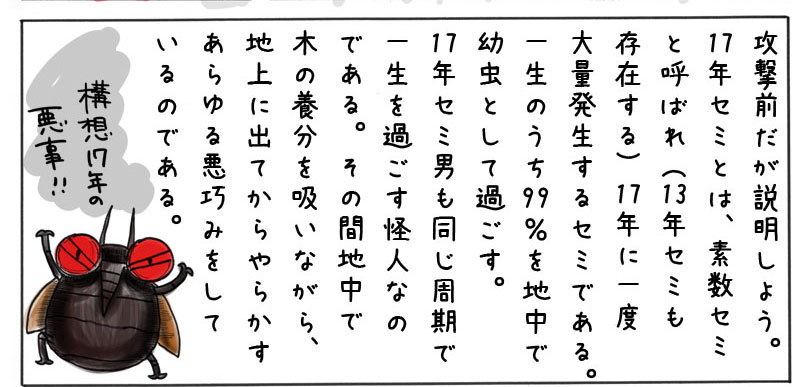 攻撃前だが説明しよう。
17年セミとは、素数セミ
と呼ばれ(13年セミも
存在する)17年に一度
大量発生するセミである。
一生のうち99%を地中で
幼虫として過ごす。
17年セミ男も同じ周期で
一生を過ごす怪人なの
である。その間地中で
木の養分を吸いながら、
地上に出てからやらかす
あらゆる悪巧みをして
いるのである。
構想17年の
悪事!!